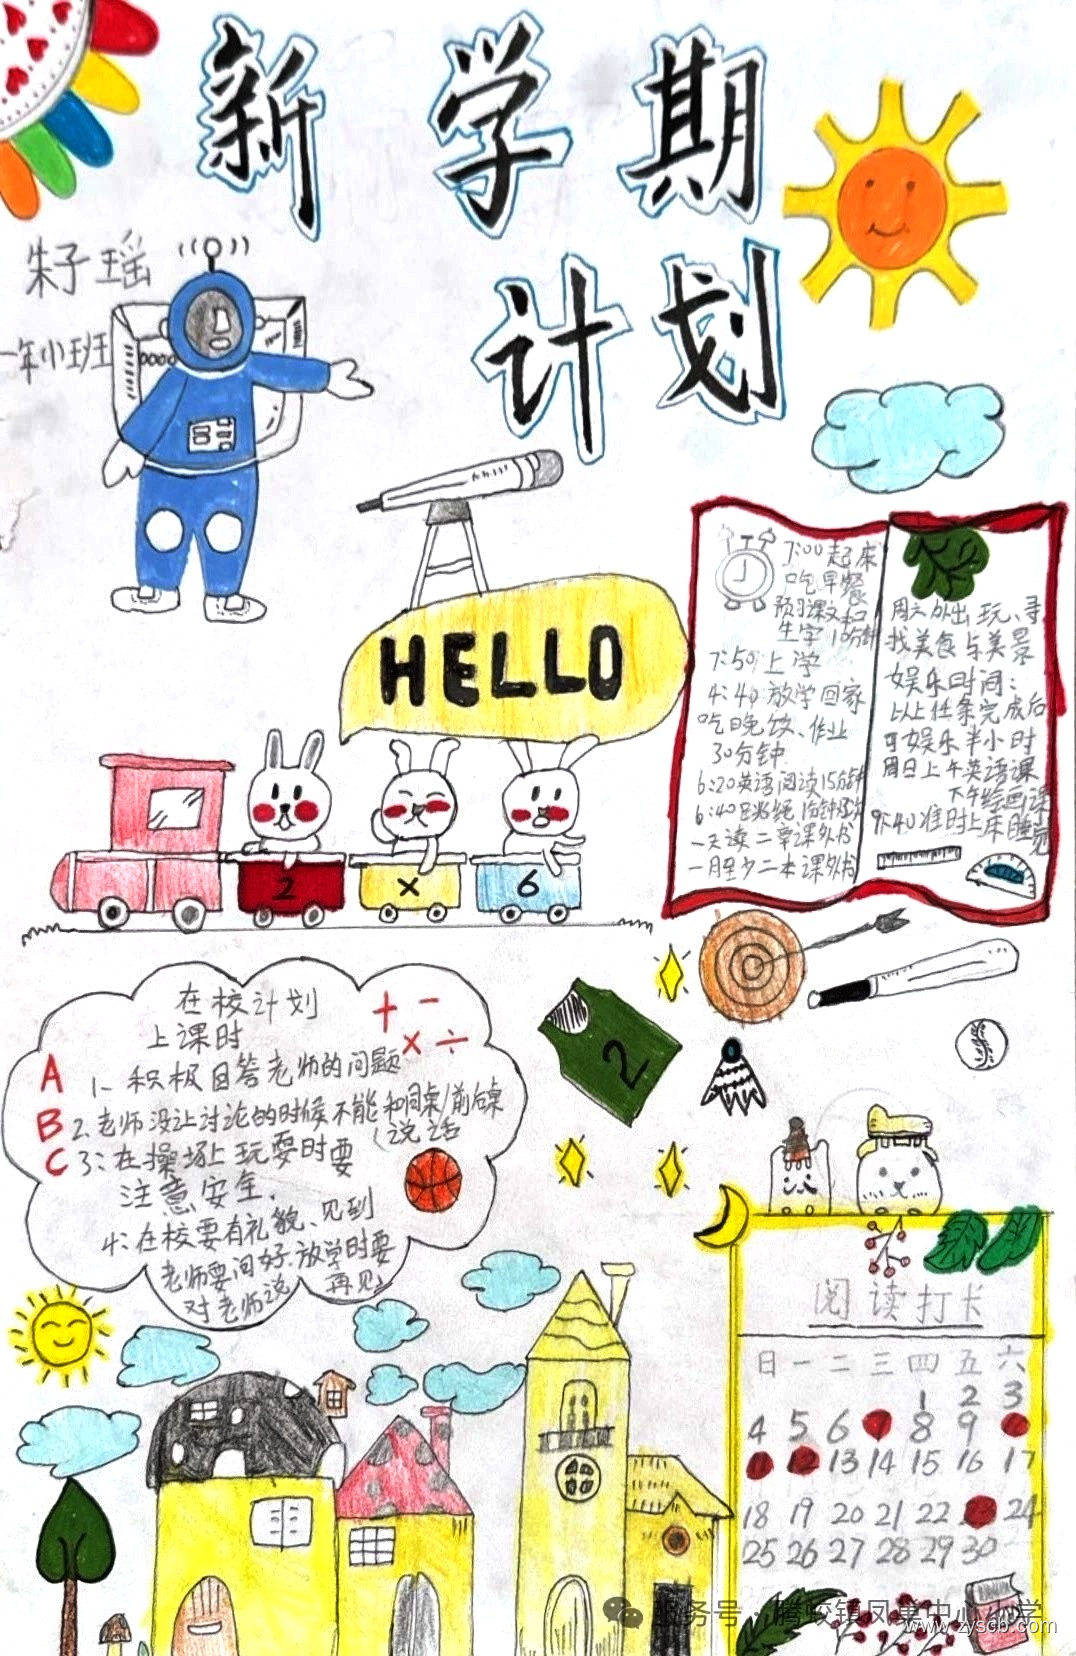 新学期
计划
朱子瑶
一年小班
HELLO
2
×
6
7:00起床
吃早餐
预习课文和
生字10分钟
7:50上学
4:40放学回家
吃晚饭、作业
30分钟
6:20英语阅读15分钟
6:40跳绳
一天读二章课外书
一月至少二本课外书
周六外出玩、寻
找美食与美景
娱乐时间:
以上任务完成后
可娱乐半小时
周日上午英语课
下午绘画课
9:40准时上床睡觉
在校计划
上课时
+ -
× ÷
A
B
C
1、积极回答老师的问题
2、老师没让讨论的时候不能和同桌/前后桌
说话
3:在操场上玩耍时要
注意安全.
4:在校要有礼貌、见到
老师要问好.放学时要
对老师说再见
2
阅读打卡
日 一 二 三 四 五 六
1 2 3
4 5 6 8 9
12 13 14 15 16 17
18 19 20 21 22 24
25 26 27 28 29 30
服务号·腾蛟镇凤巢中心小学
www.zyscb.com